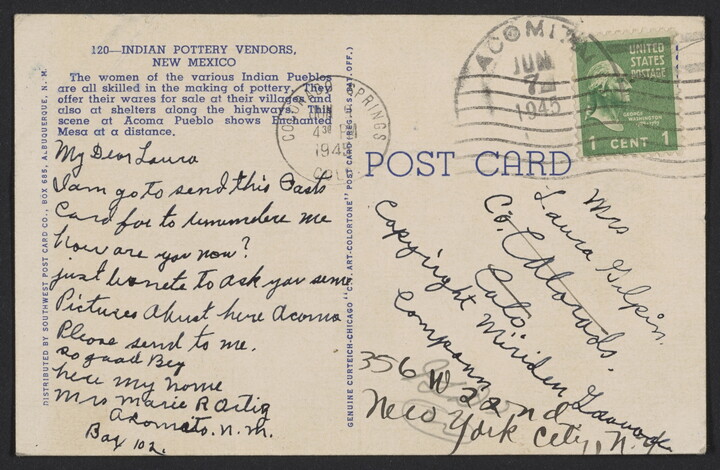 120—INDIAN POTTERY VENDORS,
NEW MEXICO
The women of the various Indian Pueblos
are all skilled in the making of pottery. They
offer their wares for sale at their villages and
also at shelters along the highways. This
scene at Acoma Pueblo shows Enchanted
Mesa at a distance.
My Dear Laura
I am go to send this Casts
Card for to rumumbere me
how are you now?
just wonete to ask you some
Pictures about here Acoma
Please send to me.
so good Bey
here my nome
Mrs Marie R Ortiz
Acomita. N.M.
Box 102.
DISTRIBUTED BY SOUTHWEST POST CARD CO., BOX 685, ALBUQUERQUE, N. M.
GENUINE CURTEICH-CHICAGO "C. T. ART-COLORTONE" POST CARD (REG. U. S. PAT. OFF.)
COLORADO SPRINGS
4 30 PM
1945
COLO
ACOMITA
JUN
7
1945
UNITED
STATES
POSTAGE
GEORGE
WASHINGTON
1 CENT 1
POST CARD
Mrs
Laura Gilpin.
Co. Colorado.
Colo
Copyright Miriden
Company
356 W 22 nd
New York City, N.Y.